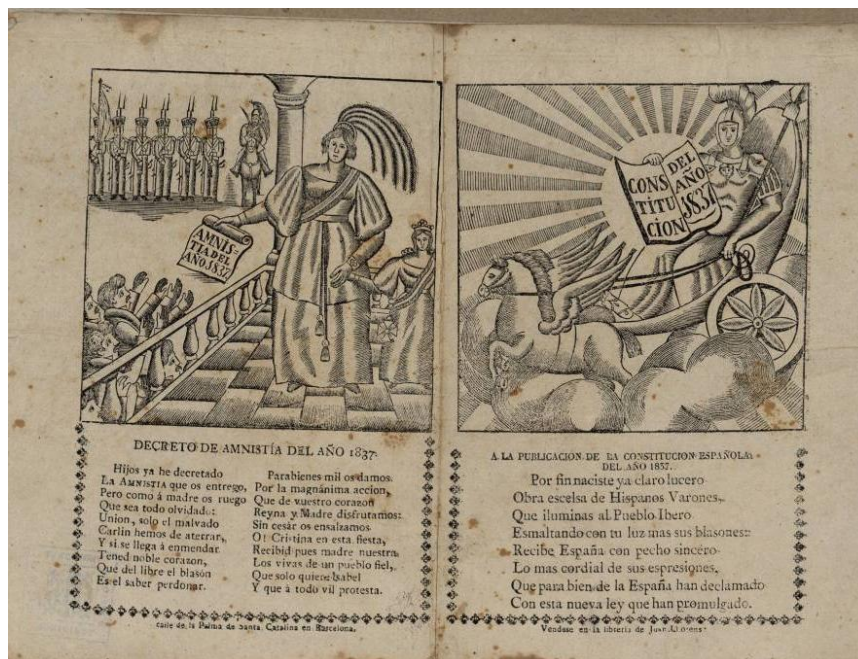 AMNIS=
TIA DEL
AÑO 1837
CONS
TITU
CION
DEL
AÑO
1837
DECRETO DE AMNISTÍA DEL AÑO 1837.
Hijos ya he decretado
La Amnistia que os entrego,
Pero como á madre os ruego
Que sea todo olvidado:
Union, solo el malvado
Carlin hemos de aterrar,
Y si se llega á enmendar
Tened noble corazon,
Que del libre el blason
Es el saber perdonar.
Parabienes mil os damos.
Por la magnánima accion,
Que de vuestro corazon
Reyna y Madre disfrutamos:
Sin cesár os ensalzamos
O! Cristina en esta fiesta,
Recibid pues madre nuestra,
Los vivas de un pueblo fiel,
Que solo quiere Isabel
Y que à todo vil protesta.
calle de la Palma de Santa Catalina en Barcelona.
A LA PUBLICACION DE LA CONSTITUCION ESPAÑOLA
DEL AÑO 1837.
Por fin naciste ya claro lucero
Obra escelsa de Hispanos Varones,
Que iluminas al Pueblo Ibero
Esmaltando con tu luz mas sus blasones:
Recibe España con pecho sincéro
Lo mas cordial de sus espresiones,
Que para bien de la España han declamado
Con esta nueva ley que han promulgado.
Véndese en la librería de Juan Llorens